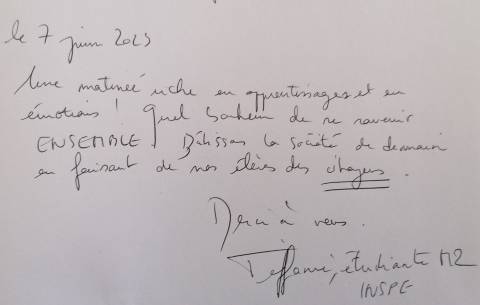 le 7 juin 2023
Une matinée riche en apprentissages et en
émotions ! Quel bonheur de se
ENSEMBLE. Bâtissons la société de demain
en faisant de nos élèves des citoyens.
Merci à vous.
étudiante M2
INSPE